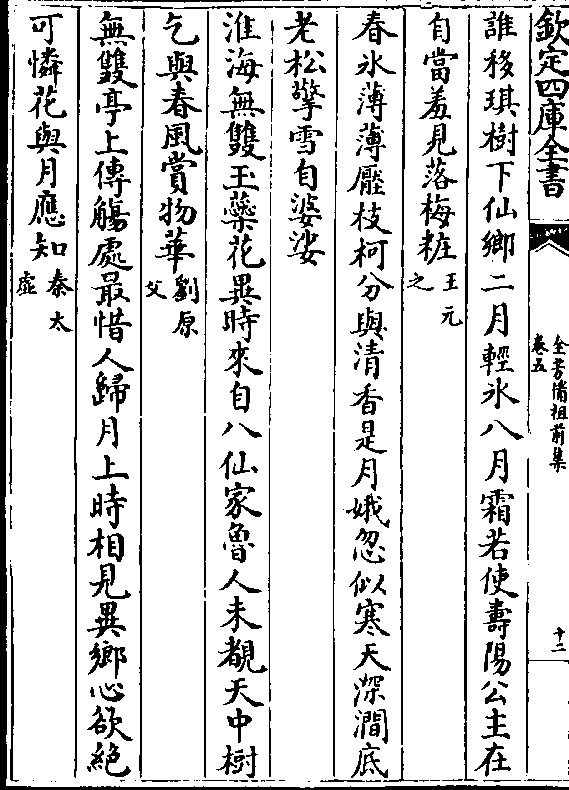 欽定四庫全書
全芳備祖前集
卷五
十二
誰移琪樹下仙鄉二月輕氷八月霜若使壽陽公主在
自當羞見落梅粧王元之
春氷薄薄壓枝柯分與清香是月娥忽似寒天深澗底
老松擎雪自婆娑
淮海無雙玉蘂花異時來自八仙家魯人未覩天中樹
乞與春風賞物華劉原父
無雙亭上傳觴處最惜人歸月上時相見異鄉心欲絶
可憐花與月應知秦太虚